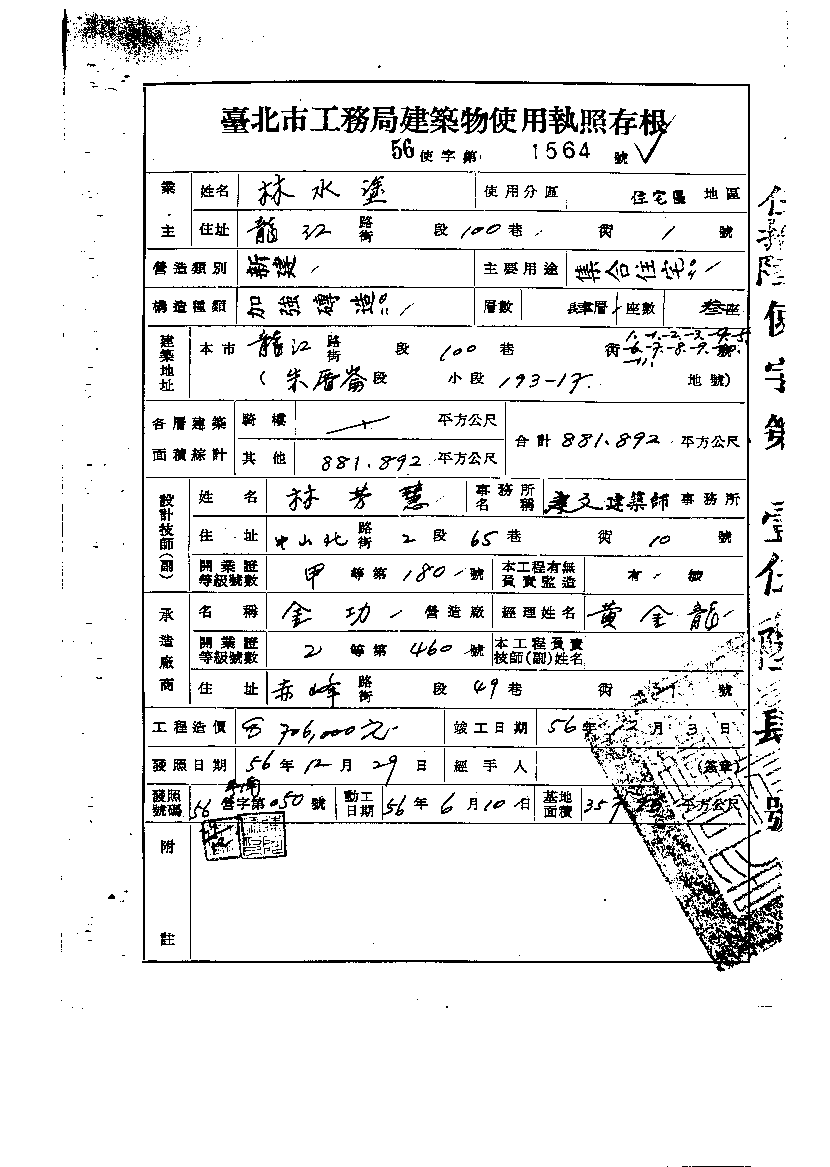 臺北市工務局建築物使用執照存根
56 使字第 1564 號
業主 姓名 林水塗 使用分區 住宅區 地區
住址 龍江 路街 段 100 巷 街 1 號
營造類別 新建 主要用途 集合住宅
構造種類 加強磚造 層數 層 座數 叁座
建築地址 本市 龍江 路街 段 100 巷 街
(朱厝崙段 小段 193-17 地號)
各層建築面積綜計 騎樓 平方公尺 合計 881.892 平方公尺
其他 881.892 平方公尺
設計技師(副) 姓名 林芳慧 事務所名稱 建築師 事務所
住址 中山北 路街 2 段 65 巷 街 10 號
開業證等級號數 甲 等第 180 號 本工程有無負責監造 有
承造廠商 名稱 金功 營造廠 經理姓名 黃金龍
開業證等級號數 2 等第 460 號 本工程負責技師(副)姓名
住址 赤峰 路街 段 49 巷 街 號
工程造價 706,000元 竣工日期 56年 月 3 日
發照日期 56年12月29日 經手人 (簽章)
發照號碼 56 營字第 050 號 動工日期 56年6月10日 基地面積 平方公尺
附註
使字第
號